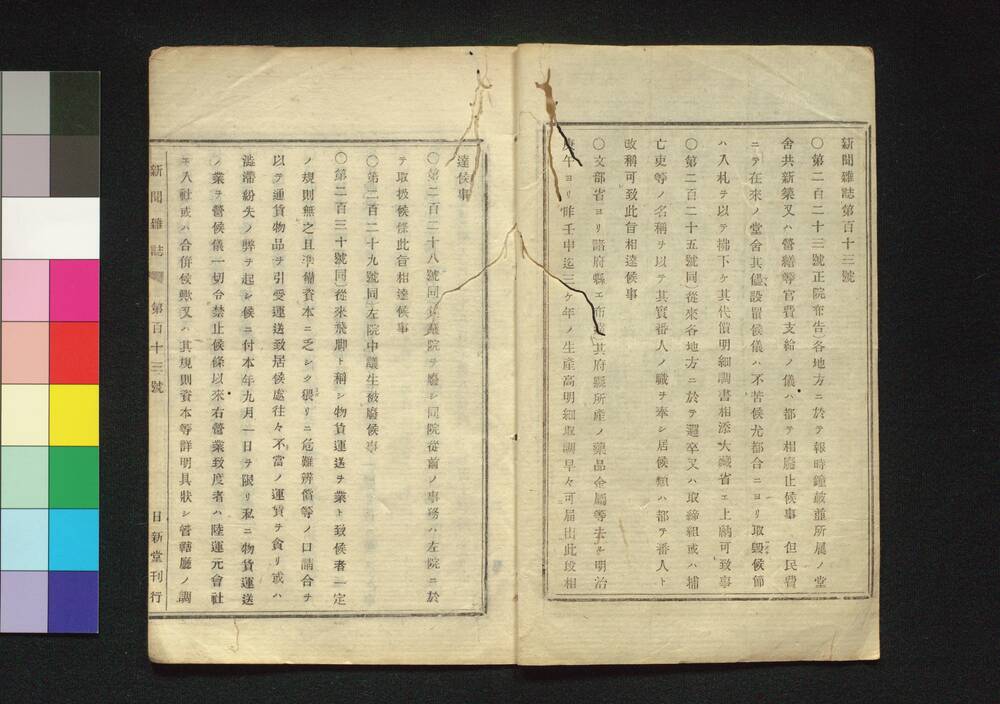 新聞雜誌第百十三號
〇第二百二十三號正院布告各地方ニ於テ報時鐘敲並所屬ノ堂
舍共新築又ハ營繕等官費支給ノ儀ハ都テ相廢止候事　但民費
ニテ在來ノ堂舍其儘設置候儀ハ不苦候尤都合ニヨリ取毀候節
ハ入札ヲ以テ拂下ケ其代償明細調書相添大藏省エ上納可致事
〇第二百二十五號同從來各地方ニ於テ邏卒又ハ取締組或ハ捕
亡吏等ノ名稱ヲ以テ其實番人ノ職ヲ奉シ居候類ハ都テ番人ト
改稱可致此旨相達候事
〇文部省ヨリ諸府縣エ布達其府縣所產ノ藥品金屬等去ル明治
庚午ヨリ昨壬申迄三ケ年ノ生產高明細取調早々可届出此段相
達候事
〇第二百二十八號同集議院ヲ廢シ同院從前ノ事務ハ左院ニ於
テ取扱候條此旨相達候事
〇第二百二十九號同左院中議生被廢候事
〇第二百三十號同從來飛脚ト稱シ物貨運送ヲ業ト致候者一定
ノ規則無之且準備資本ニ乏シク猥リニ危難辨償等ノ口請合ヲ
以テ通貨物品ヲ引受運送致居候處往々不當ノ運賃ヲ貪リ或ハ
澁滯紛失ノ弊ヲ起シ候ニ付本年九月一日ヲ限リ私ニ物貨運送
ノ業ヲ營候儀一切令禁止候條以來右營業致度者ハ陸運元會社
エ入社或ハ合併候歟又ハ其規則資本等詳明具狀シ管轄廳ノ調
新聞雜誌　第百十三號　日新堂刊行